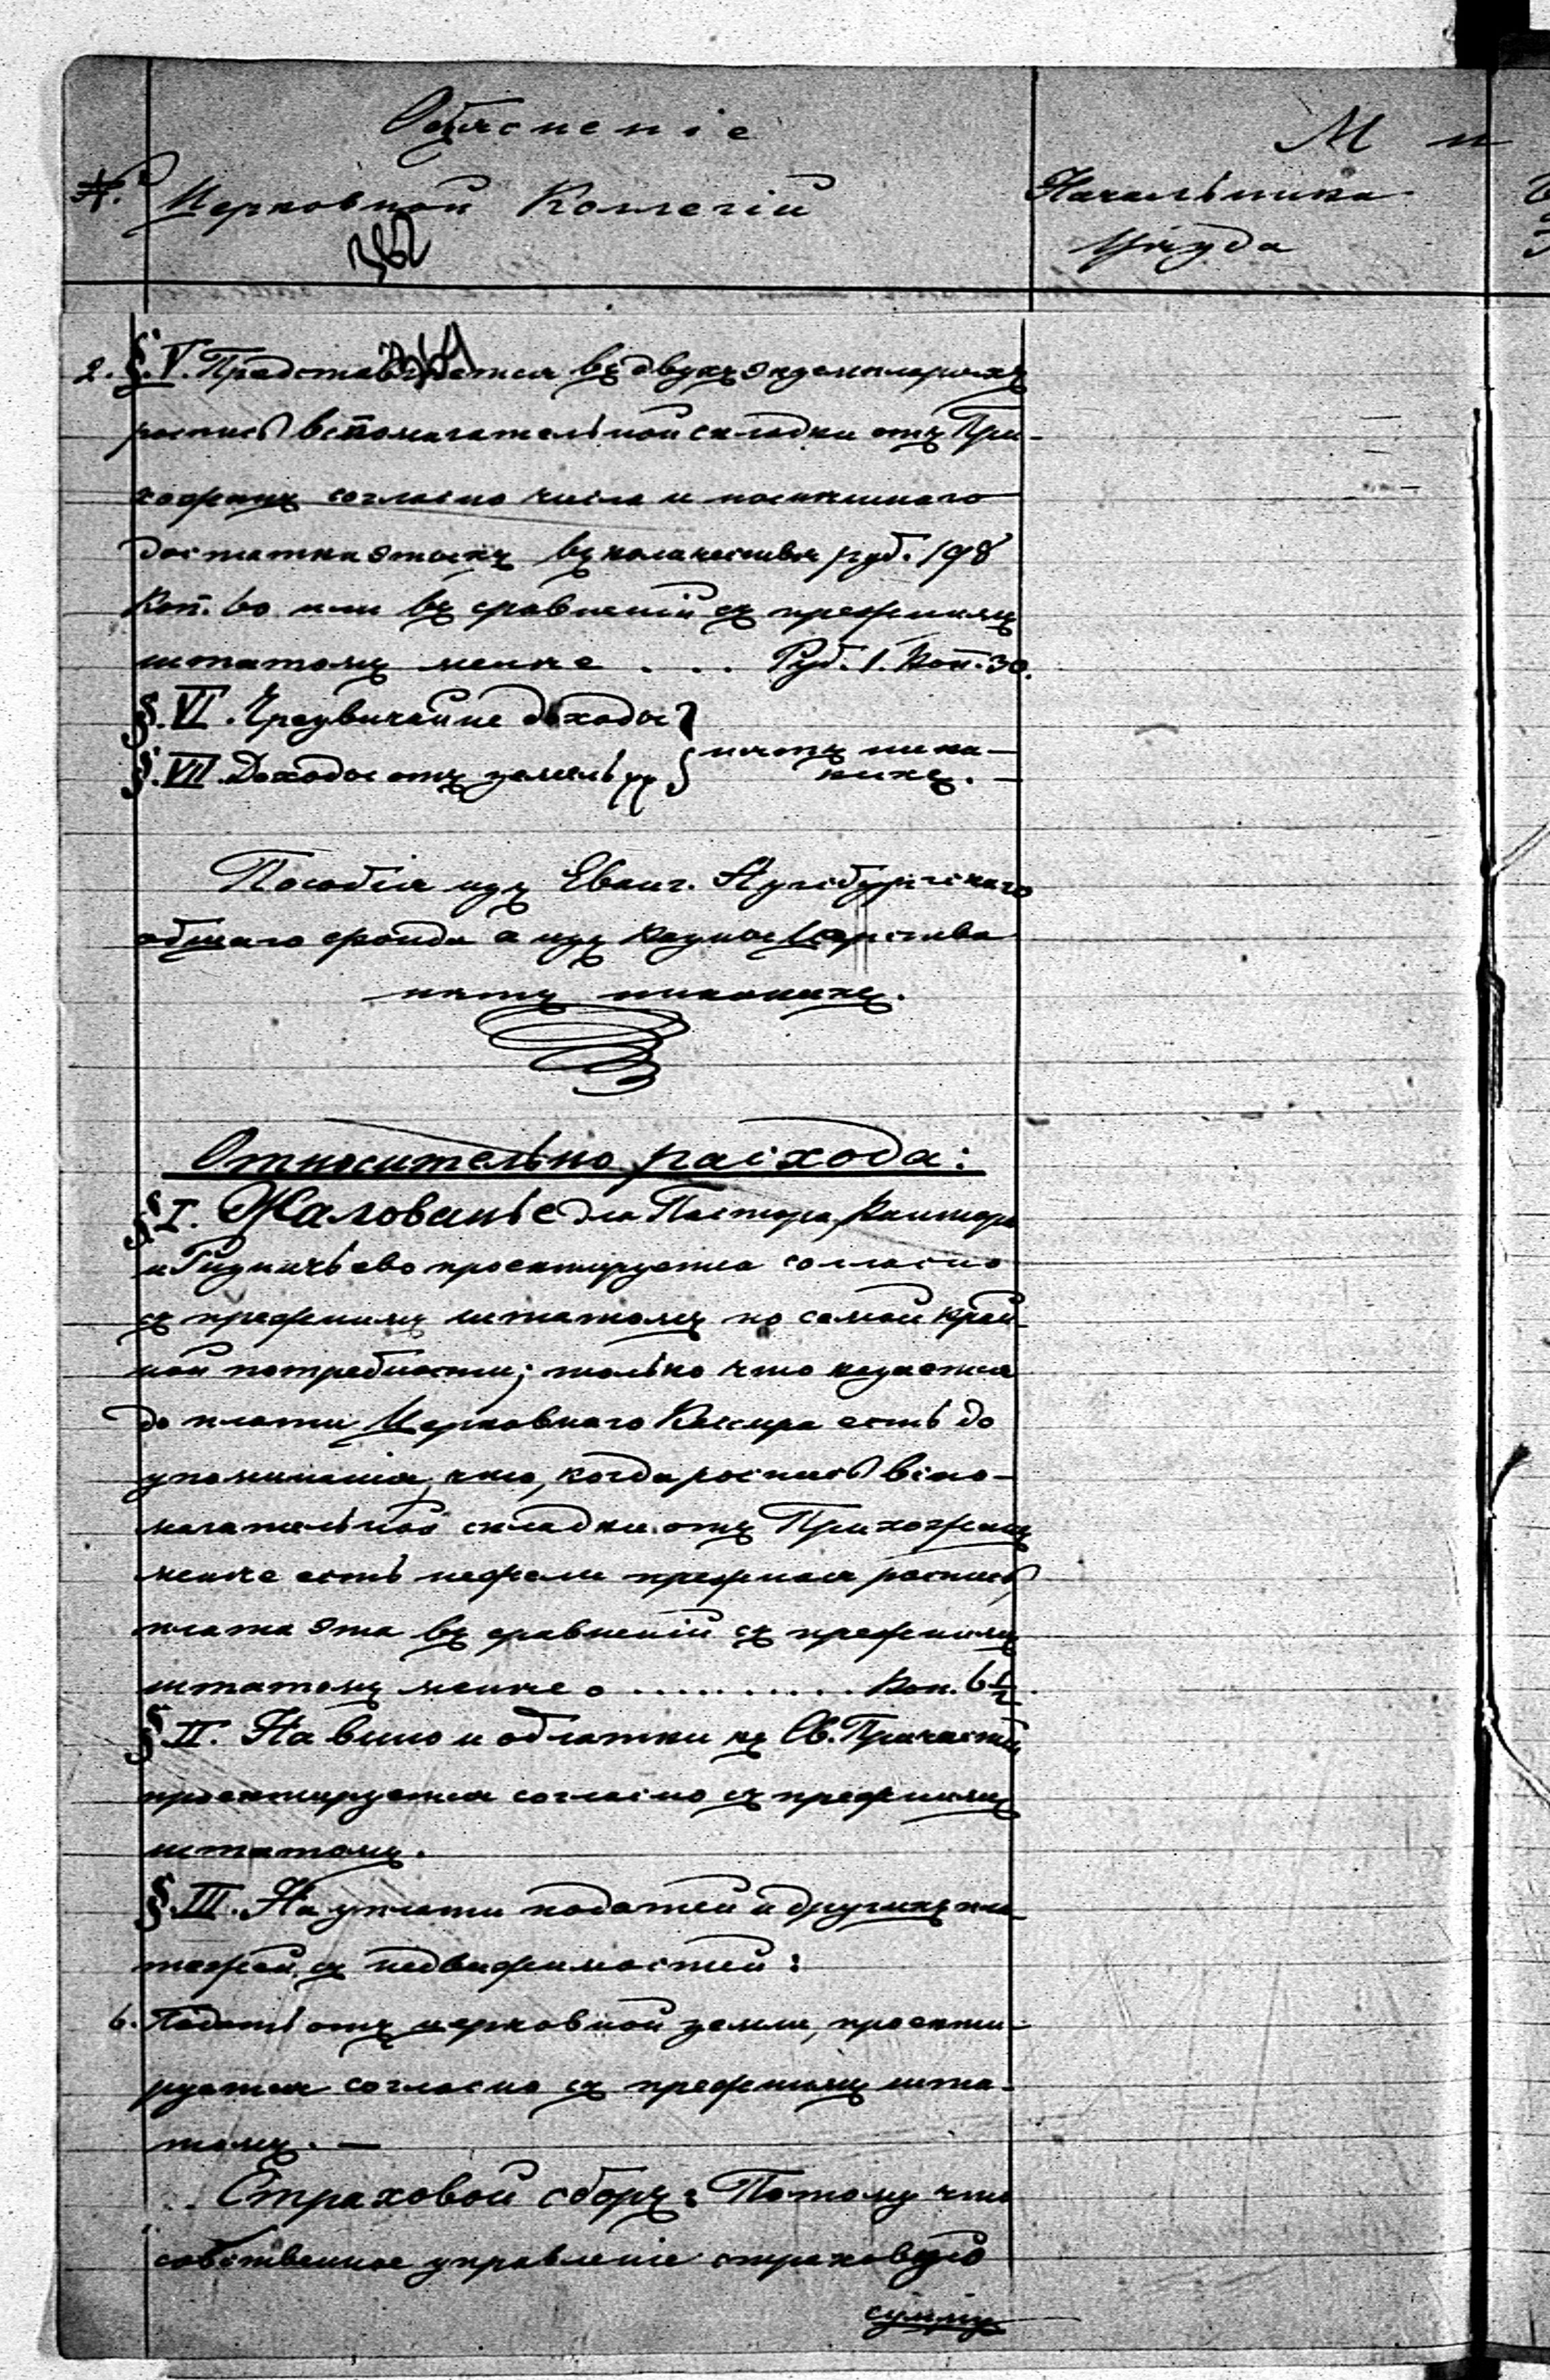 Объясненіе
М н
№ Церковной Коллегіи
Начальника
Уѣзда
382
2. §.V. Представляется въ двухъ экземплярахъ
роспись вспомагательной складки отъ При-
хожанъ согласно числа и
достатка этыхъ въ количествѣ руб. 198
Коп. 60 или въ сравненіи съ прежнимъ
штатомъ менѣе . . . Руб. 1. Коп. 30.
§.VI. Чрезвичайне доходы
§.VII. Доходы отъ земель
нѣтъ ника-
кихъ. —
Пособія изъ Еванг. Аугсбургскаго
общаго фонда а изъ Казны Царства
нѣтъ никакихъ.
Относительно расхода:
§ I. Жалованьѐ для Пастора, Кантора
и проектируется согласно
съ прежнимъ штатомъ по самой край-
ной потребности; только что касается
до плати Церковнаго Кассира есть до
упоминанія, что, когда роспись вспо-
магательной складки отъ Прихожанъ
менѣе есть нежели прежная роспись,
плата эта въ сравненіи съ прежнимъ
штатомъ менѣе о .......... Коп. 6½.
§.II. На вино и облатки къ Св. Причастію
проектируется согласно съ прежнимъ
штатомъ.
§.III. На уплати податей и другихъ пла-
тежей съ недвижимостей:
6. Подать отъ церковной земли, проекти-
руется согласно съ прежнимъ шта-
томъ. —
Страховой сборъ: Потому что
собственное управленіе страховую
сумму